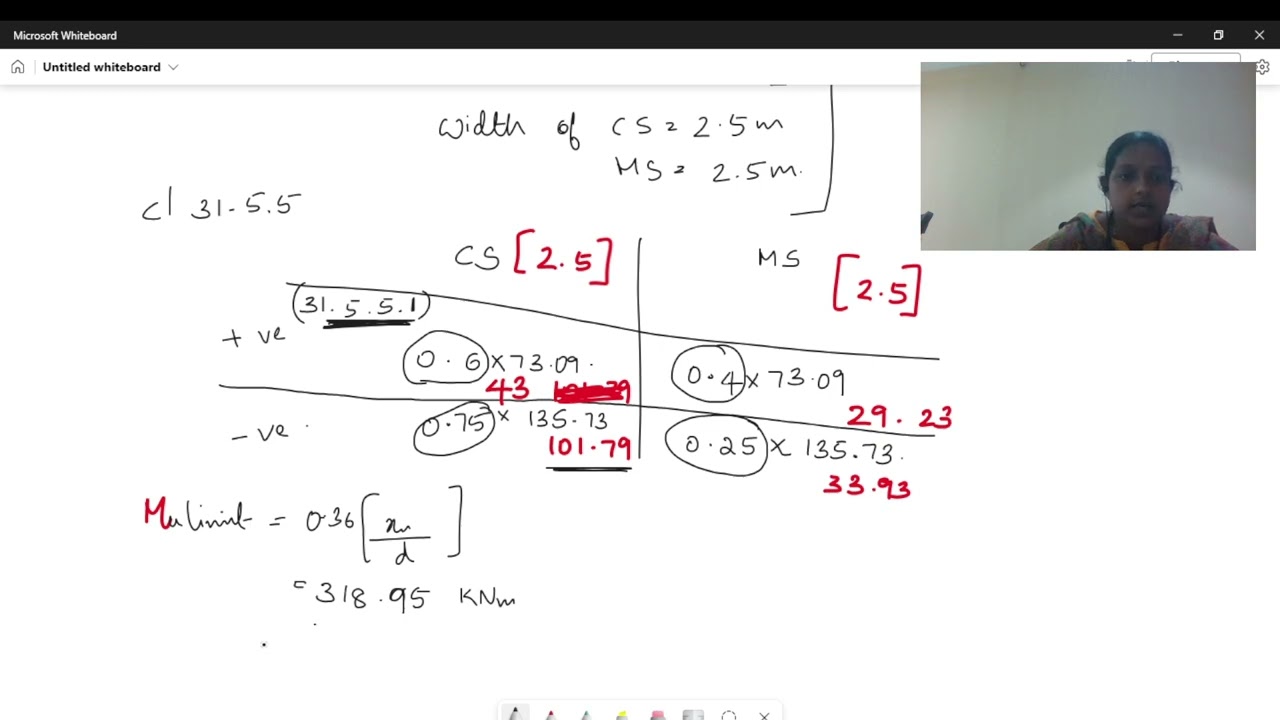 Microsoft Whiteboard
Untitled whiteboard
width of CS = 2.5m
MS = 2.5m.
cl 31.5.5
CS [2.5] MS [2.5]
(31.5.5.1)
+ ve 0.6 × 73.09. 0.4 × 73.09
43 29.23
- ve 0.75 × 135.73 0.25 × 135.73.
101.79 33.93
Mu limit = 0.36 [xu/d]
= 318.95 KNm